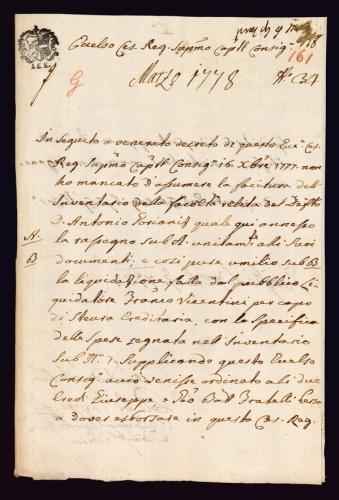 Eccelso Ces. Reg. Supmo Captl Consig.
161
G
Marzo 1778
No 34
In seguito a venerato decreto di questo Ecc. Ces.
Reg. Supmo Captl Consig. 16. Xbre 1777. non
ho mancato d'assumere la facitura dell'
Inventario della facoltà relita dal
D. Antonio qual qui annesso
A
la rassegno sub A. unitamte alli Suoi
B
documenti, e così pure umilio sub B
la liquidazione fatta dal pubblico Li-
quidatore Franco Vicentini per capo
di Steura Ereditaria, con la Specifica
delle spese segnata nell'Inventario
Sub N. 7. Supplicando questo Eccelso
Consig. acciò venisse ordinato alli due
Eredi Giuseppe, e Fratelli
a dover esborsare in questo Ces. Reg.